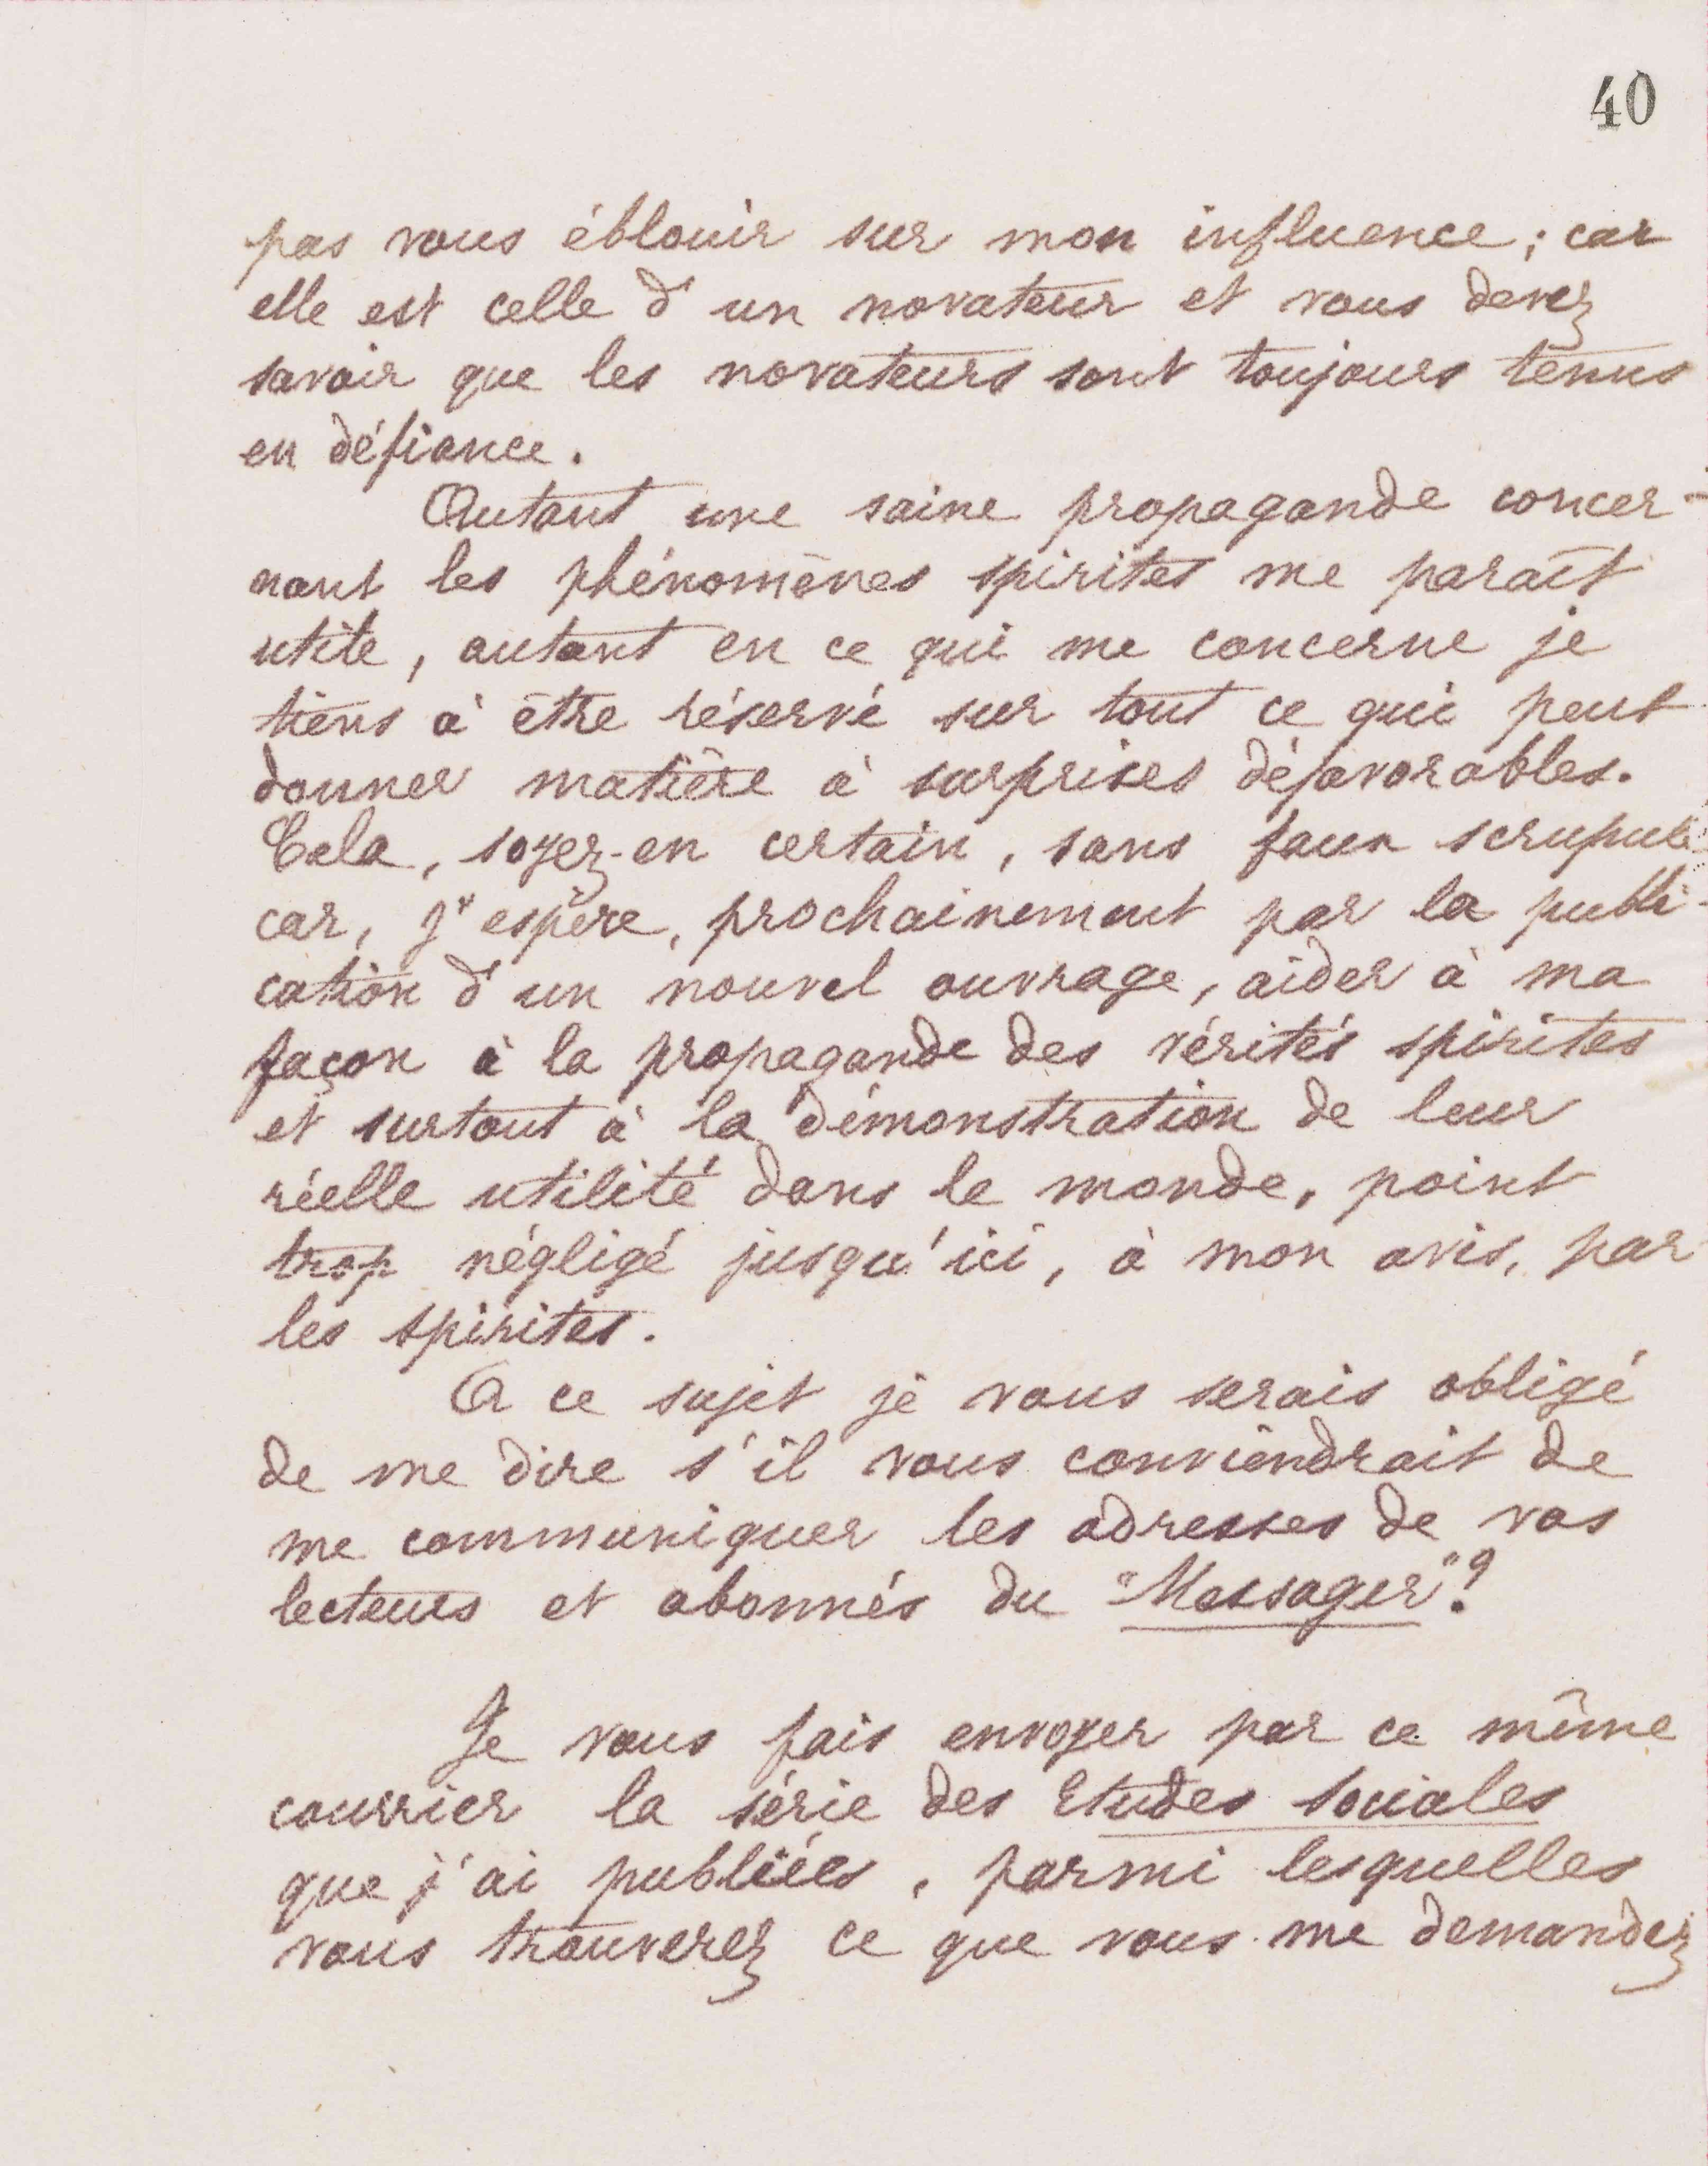 40
pas vous éblouir sur mon influence ; car
elle est celle d'un novateur et vous devez
savoir que les novateurs sont toujours tenus
en défiance.
Autant une saine propagande concer-
nant les phénomènes spirites me paraît
utile, autant en ce qui me concerne je
tiens à être réservé sur tout ce qui peut
donner matière à surprises défavorables.
Cela, soyez-en certain, sans faux scrupule
car, j'espère, prochainement par la publi-
cation d'un nouvel ouvrage, aider à ma
façon à la propagande des vérités spirites
et surtout à la démonstration de leur
réelle utilité dans le monde, point
trop négligé jusqu'ici, à mon avis, par
les spirites.
A ce sujet je vous serais obligé
de me dire s'il vous conviendrait de
me communiquer les adresses de vos
lecteurs et abonnés du "Messager"?
Je vous fais envoyer par ce même
courrier la série des Etudes sociales
que j'ai publiées, parmi lesquelles
vous trouverez ce que vous me demandez